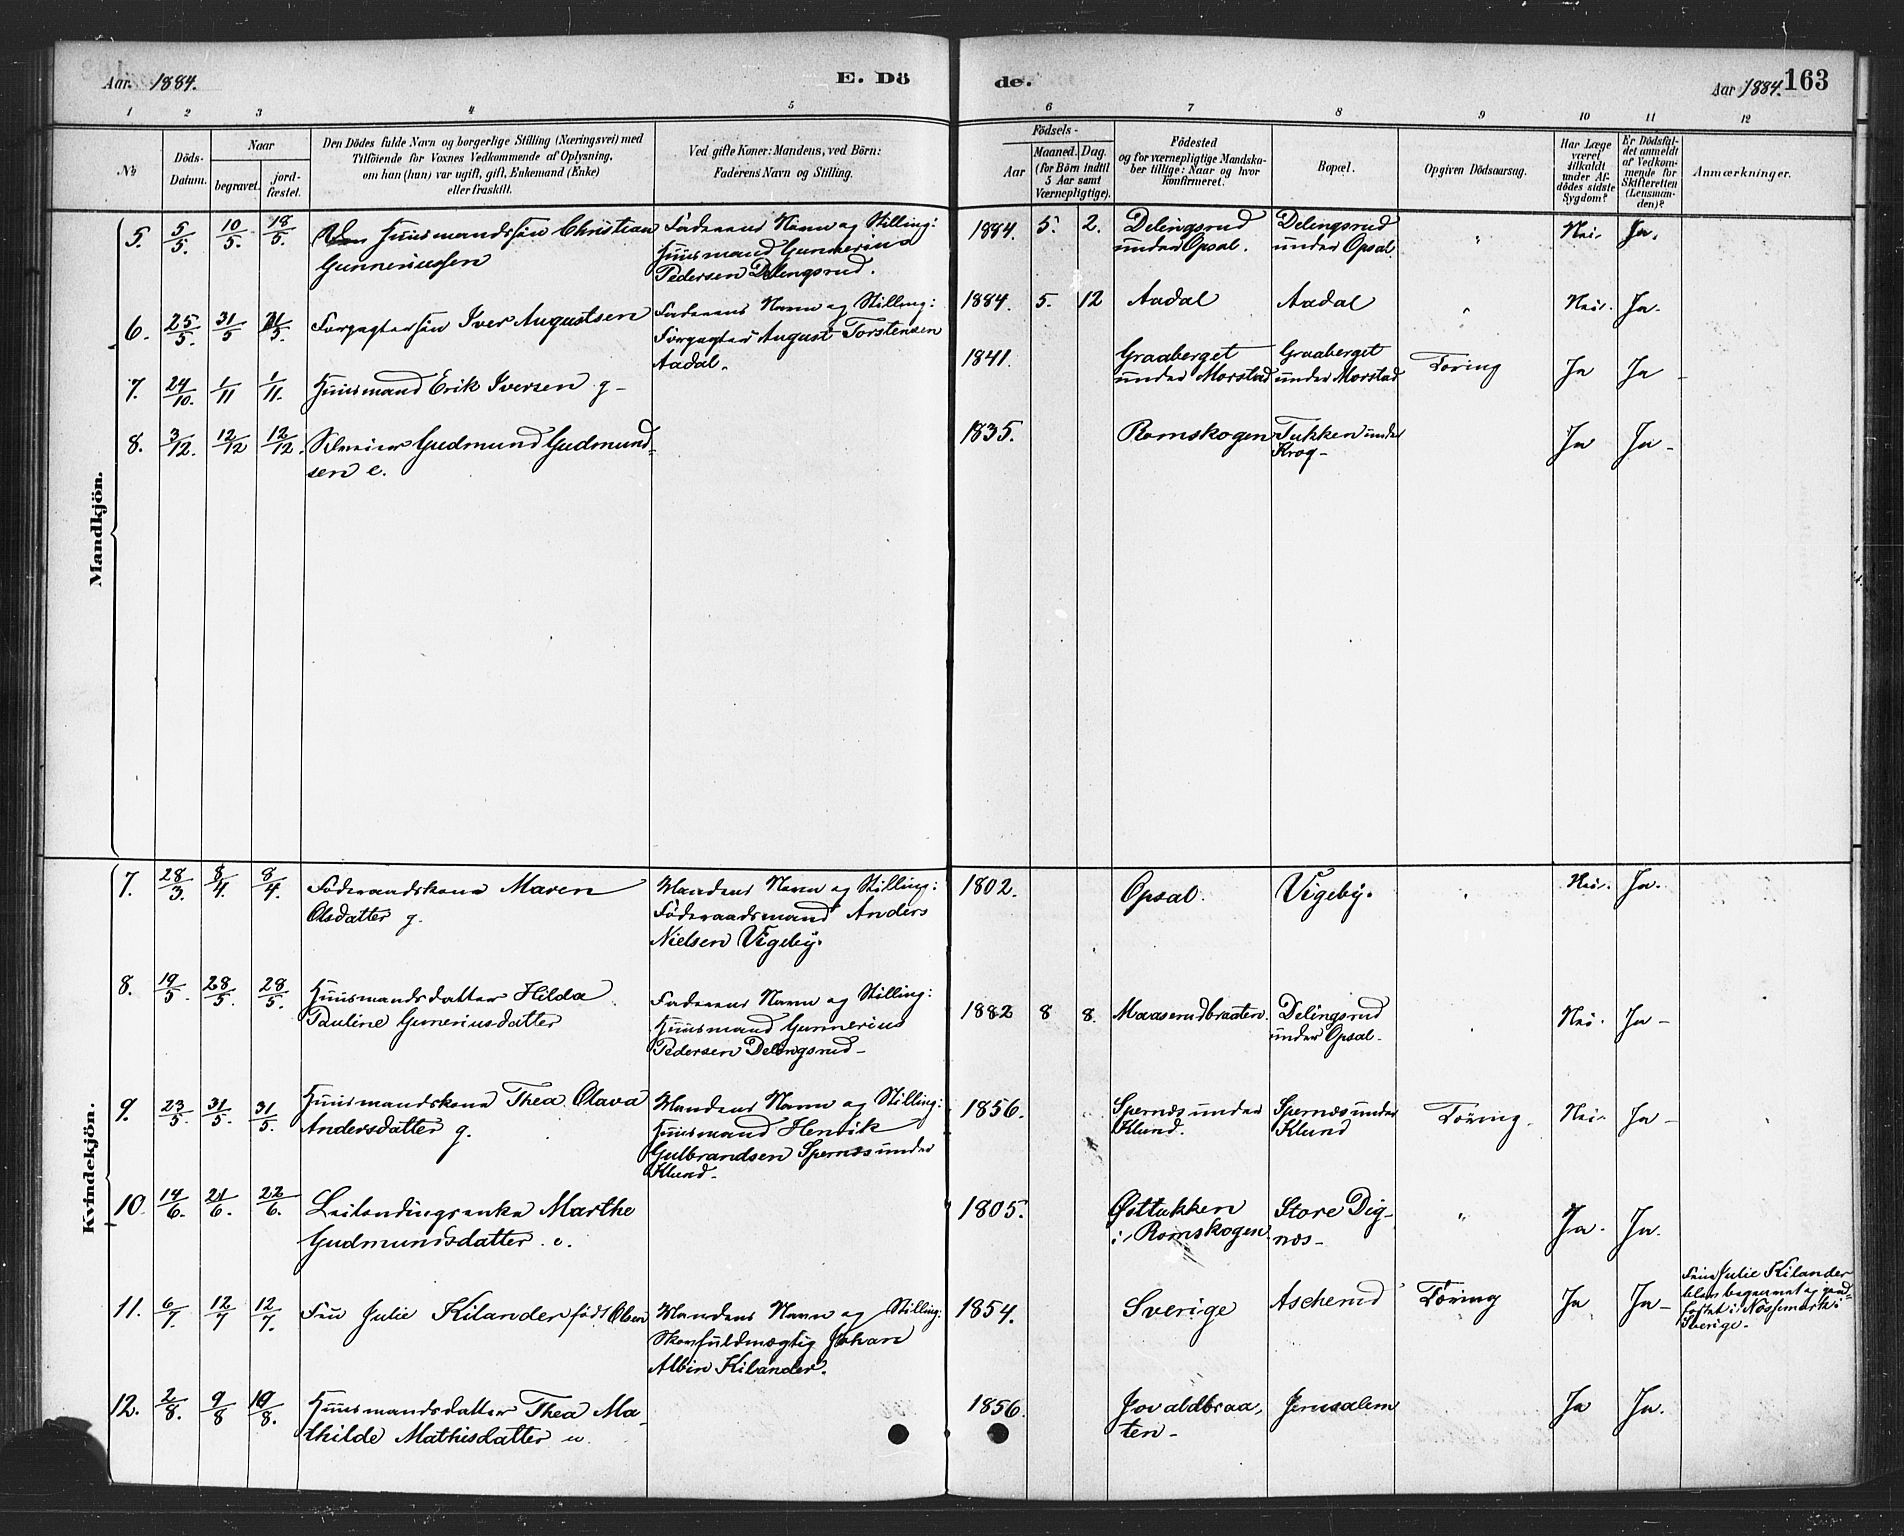 Aar. 1884.
E. Dö
de.
Aar 1884. 163
1 2 3 4 5 6 7 8 9 10 11 12
No
Döds-
Datum.
Naar
begravet.
jord-
fæstet.
Den Dödes fulde Navn og borgerlige Stilling (Næringsvei) med
Tilföiende for Voxnes Vedkommende af Oplysning,
om han (hun) var ugift, gift, Enkemand (Enke)
eller fraskilt.
Ved gifte Koner: Mandens, ved Börn:
Faderens Navn og Stilling.
Födsels-
Aar
Maaned. Dag.
(for Börn indtil
5 Aar samt
Værnepligtige).
Födested
og for værnepligtige Mandska-
ber tillige: Naar og hvor
konfirmeret.
Bopæl.
Opgiven Dödsaarsag.
Har Læge
været
tilkaldt
under Af-
dödes sidste
Sygdom?
Er Dödsfal-
det anmeldt
af Vedkom-
mende for
Skifteretten
(Lensman-
den)?
Anmærkninger.
Mandkjön.
5. 5/5. 10/5. 18/5. Huusmandssön Christian
Gunneriussen
Faderens Navn og Stilling:
Huusmand Gunnerius
Pedersen Delingsrud.
1884. 5. 2. Delingsrud
under Opsal.
Delingsrud
under Opsal.
" Nei. Ja.
6. 25/5. 31/5 31/5. Forpagtersön Iver Augustsen
Faderens Navn og Stilling:
Forpagter August Torstensen
Aadal.
1884. 5. 12 Aadal Aadal " Nei. Ja.
7. 24/10. 1/11 1/11. Huusmand Erik Iversen g-
1841. Graaberget
under Morstad
Graaberget
under Morstad
Tæring Ja Ja
8. 3/12. 12/12 12/12. Gudmund Gudmund-
sen e.
1835. Romskogen Tukken under
Krog-
Ja Ja-
Kvindekjön.
7. 28/3. 8/4 8/4. Föderaadskone Maren
Olsdatter g.
Mandens Navn og Stilling:
Föderaadsmand Anders
Nielsen Vigeby.
1802. Opsal. Vigeby. " Nei. Ja.
8. 19/5. 28/5. 28/5. Huusmandsdatter Hilda
Pauline Guneriusdatter
Faderens Navn og Stilling:
Huusmand Gunnerius
Pedersen Delingsrud-
1882 8 8. Maaserudbraaten. Delingsrud
under Opsal.
Nei. Ja-
9. 23/5. 31/5. 31/5. Huusmandskone Thea Olava
Andersdatter g.
Mandens Navn og Stilling:
Huusmand Henrik
Gulbrandsen Spernæs under
Klund.
1856. Spernæs under
Klund.
Spernæs under
Klund
Tæring. Nei- Ja-
10. 14/6. 21/6. 22/6. Leilændingsenke Marthe
Gudmundsdatter. e.
1805. Østtukken
i Romskogen.
Store Dig-
næs-
" Ja. Ja.
11. 6/7. 12/7 12/7. Fru Julie Kilander född Olsen
Mandens Navn og Stilling:
Skovfuldmægtig Johan
Albin Kilander.
1854. Sverige Ascherud Tæring Ja Ja-
Fru Julie Kilander
blev begravet og jord-
fæstet i Nössemark i
Sverige.
12. 2/8. 9/8 19/8. Huusmandsdatter Thea Ma-
thilde Mathisdatter u.
1856. Jovaldbraa-
ten-
Jerusalem
Ja Ja.